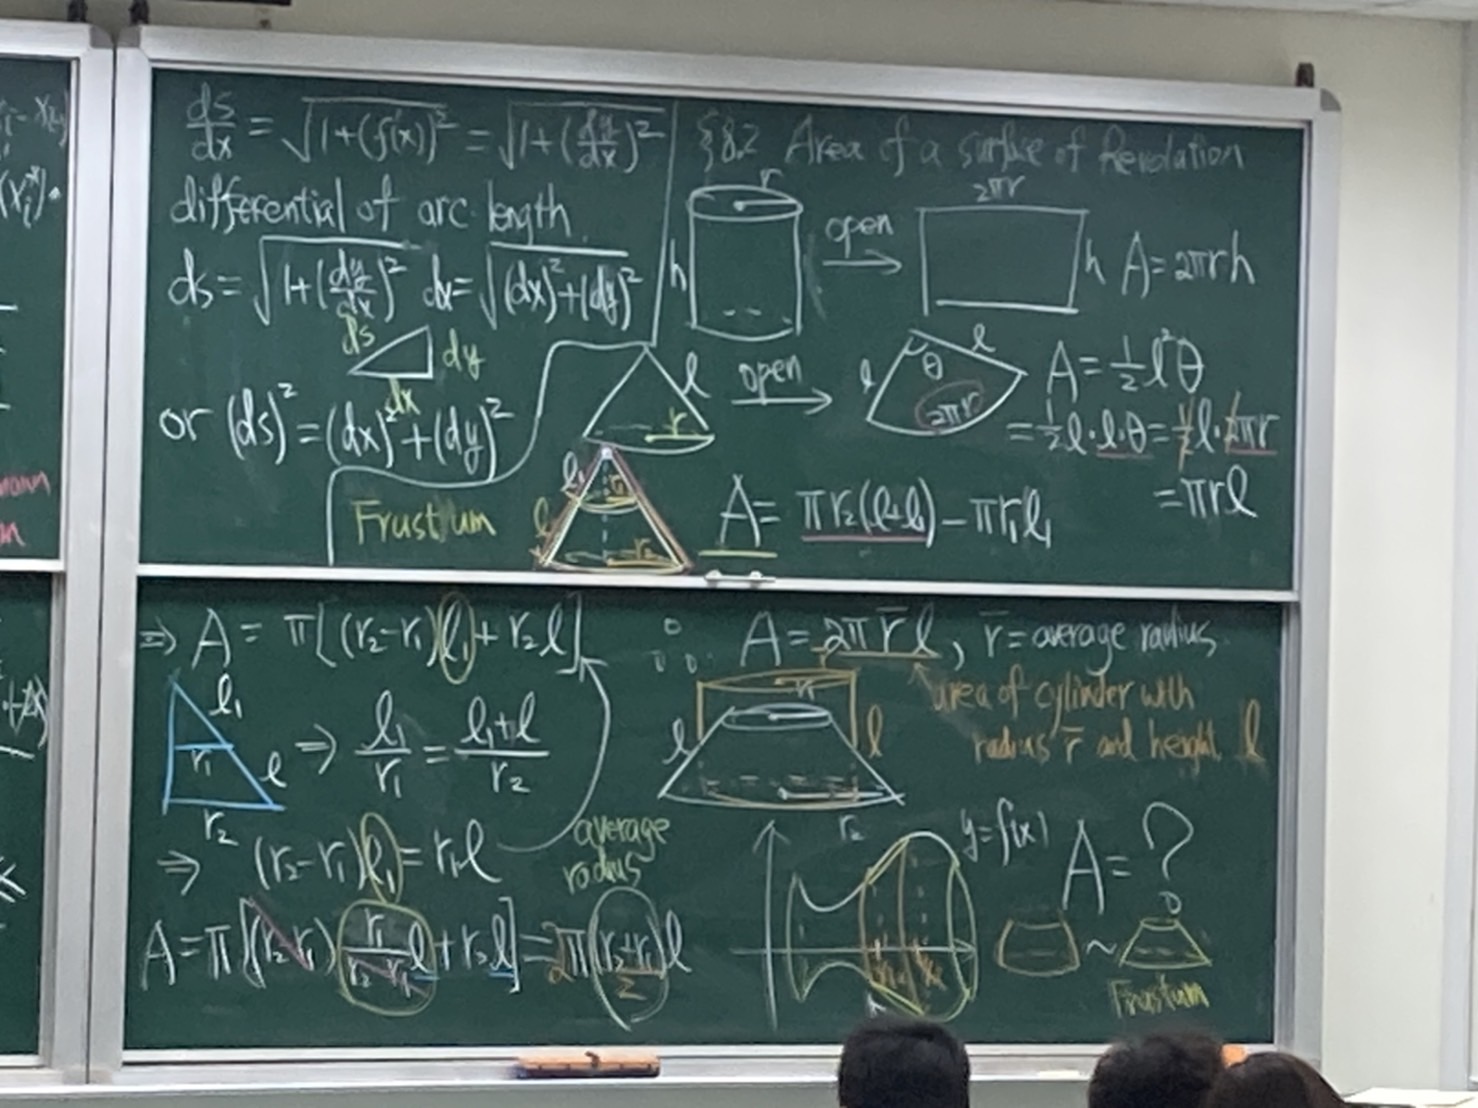 i - x_{i-1}
(x_i^*).
mann
\frac{ds}{dx} = \sqrt{1+(f'(x))^2} = \sqrt{1+(\frac{dy}{dx})^2}
differential of arc length.
ds = \sqrt{1+(\frac{dy}{dx})^2} dx = \sqrt{(dx)^2+(dy)^2}
ds dy
dx
or (ds)^2 = (dx)^2+(dy)^2
§8.2 Area of a surface of Revolution
r
h open → 2πr h A = 2πrh
l r open → l θ l 2πr A = \frac{1}{2}l^2θ
= \frac{1}{2}l·l·θ = \frac{1}{2}l·2πr
= πrl
Frustum l_1 r_1 l r_2 A = πr_2(l+l_1) - πr_1l_1
⇒ A = π[(r_2-r_1)l_1 + r_2l]
l_1 r_1 l r_2 ⇒ \frac{l_1}{r_1} = \frac{l_1+l}{r_2}
⇒ (r_2-r_1)l_1 = r_1l
average
radius
A = π[(r_2-r_1)\frac{r_1}{r_2-r_1}l + r_2l] = 2π(\frac{r_2+r_1}{2})l
∴ A = 2π\bar{r}l, \bar{r} = average radius
area of cylinder with
radius \bar{r} and height l
l r_1 l
r_2
y=f(x) A = ?
~
Frustum